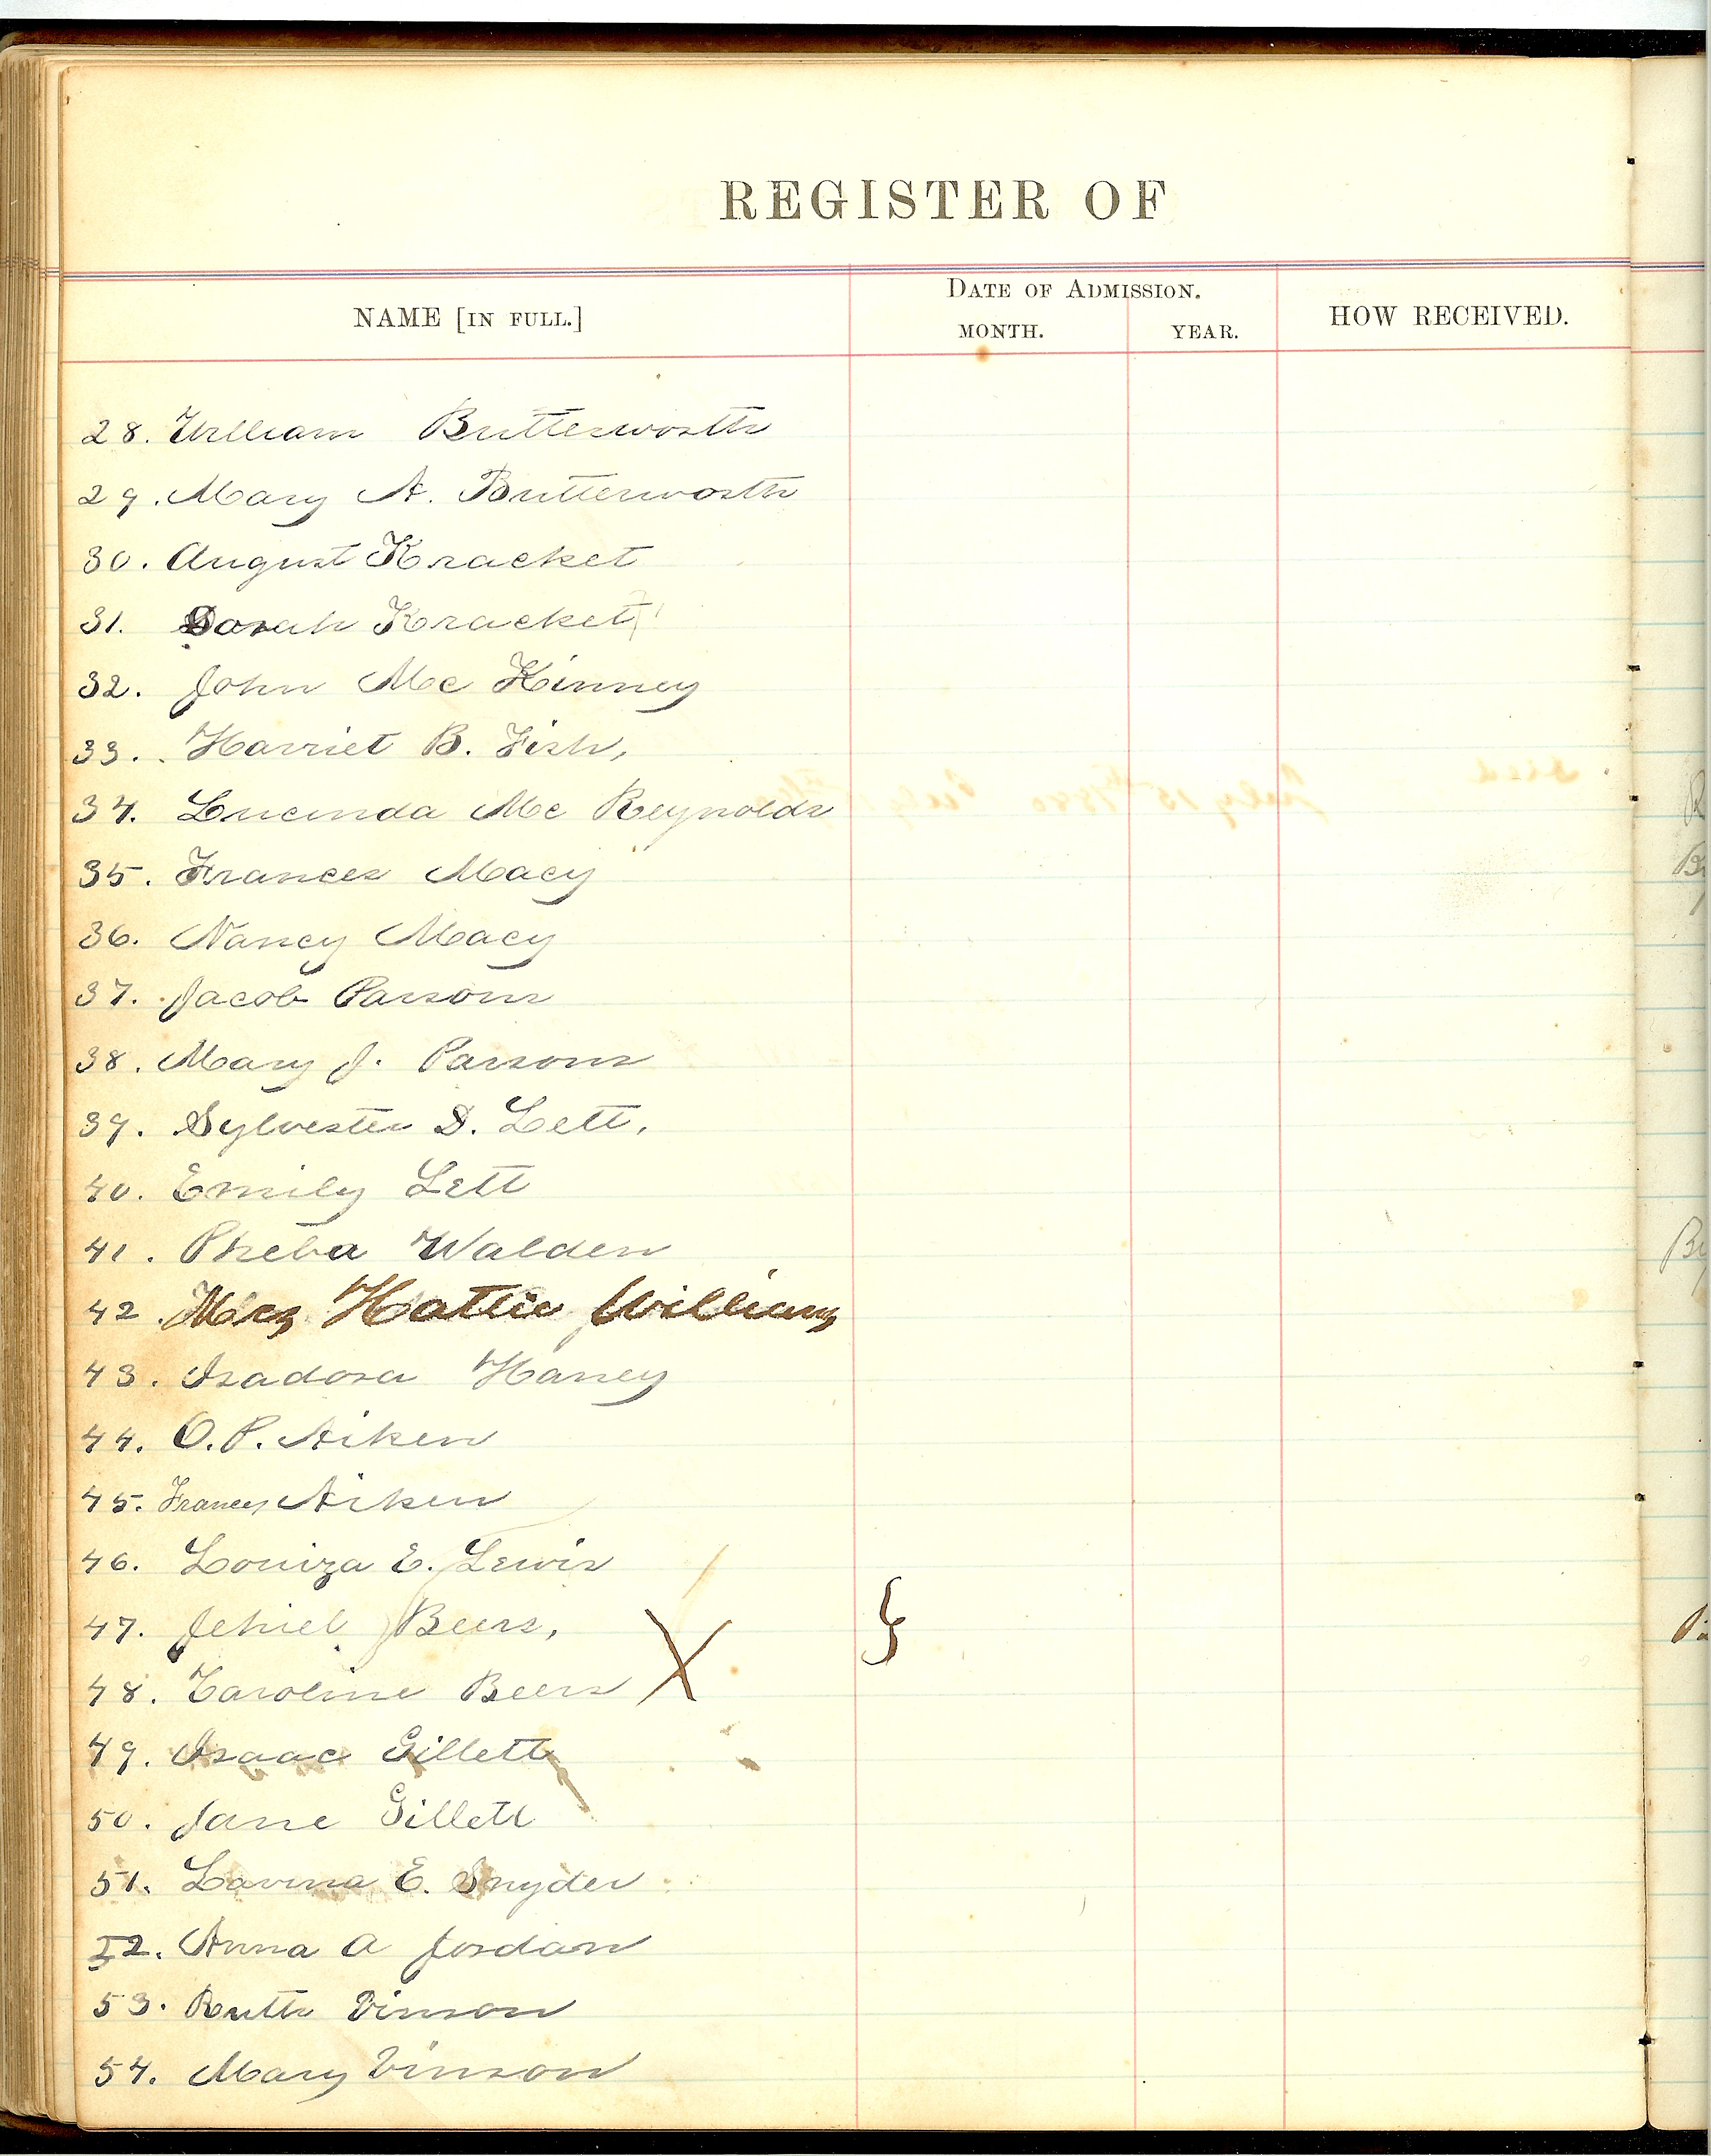 REGISTER OF
NAME [IN FULL.]
DATE OF ADMISSION.
MONTH.
YEAR.
HOW RECEIVED.
28. William Butterworth
29. Mary A. Butterworth
30. August Kracket
31. Sarah Kracket
32. John Mc Kinney
33. Harriet B. Fish,
34. Lucinda Mc Reynolds
35. Frances Macy
36. Nancy Macy
37. Jacob Parsons
38. Mary J. Parsons
39. Sylvester D. Lett,
40. Emily Lett
41. Pheba Walden
42. Mrs Hattie Williams
43. Isadora Haney
44. O. P. Aiken
45. Frances Aiken
46. Louiza E. Lewis
47. Jehiel Beers,
48. Caroline Beers X
49. Isaac Gillett
50. Jane Gillett
51. Lavina E. Snyder
52. Anna A Jordan
53. Ruth Vinson
54. Mary Vinson